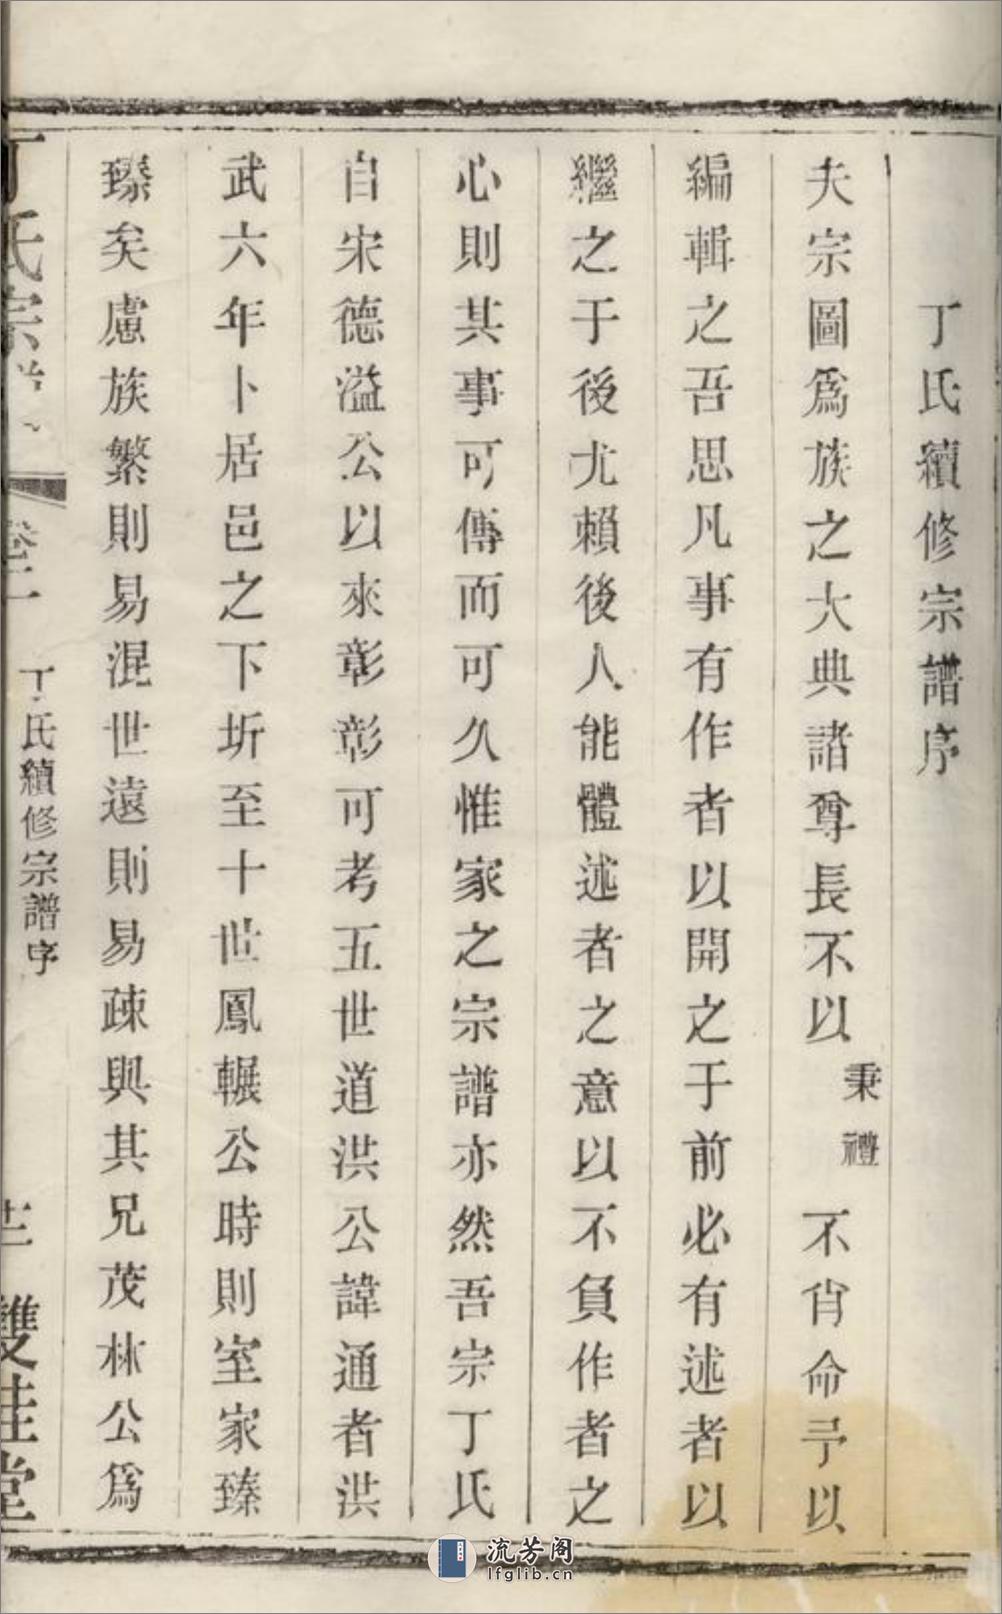 丁氏續修宗譜序
夫宗圖爲族之大典諸尊長不以秉禮不肖命予以
編輯之吾思凡事有作者以開之于前必有述者以
繼之于後尤賴後人能體述者之意以不負作者之
心則其事可傳而可久惟家之宗譜亦然吾宗丁氏
自宋德溢公以來彰彰可考五世道洪公諱通者洪
武六年卜居邑之下圻至十世鳳輾公時則室家臻
臻矣慮族繁則易混世遠則易疎與其兄茂林公爲
丁氏宗譜 卷一 丁氏續修宗譜序 雙桂堂
流芳阁
lfglib.cn